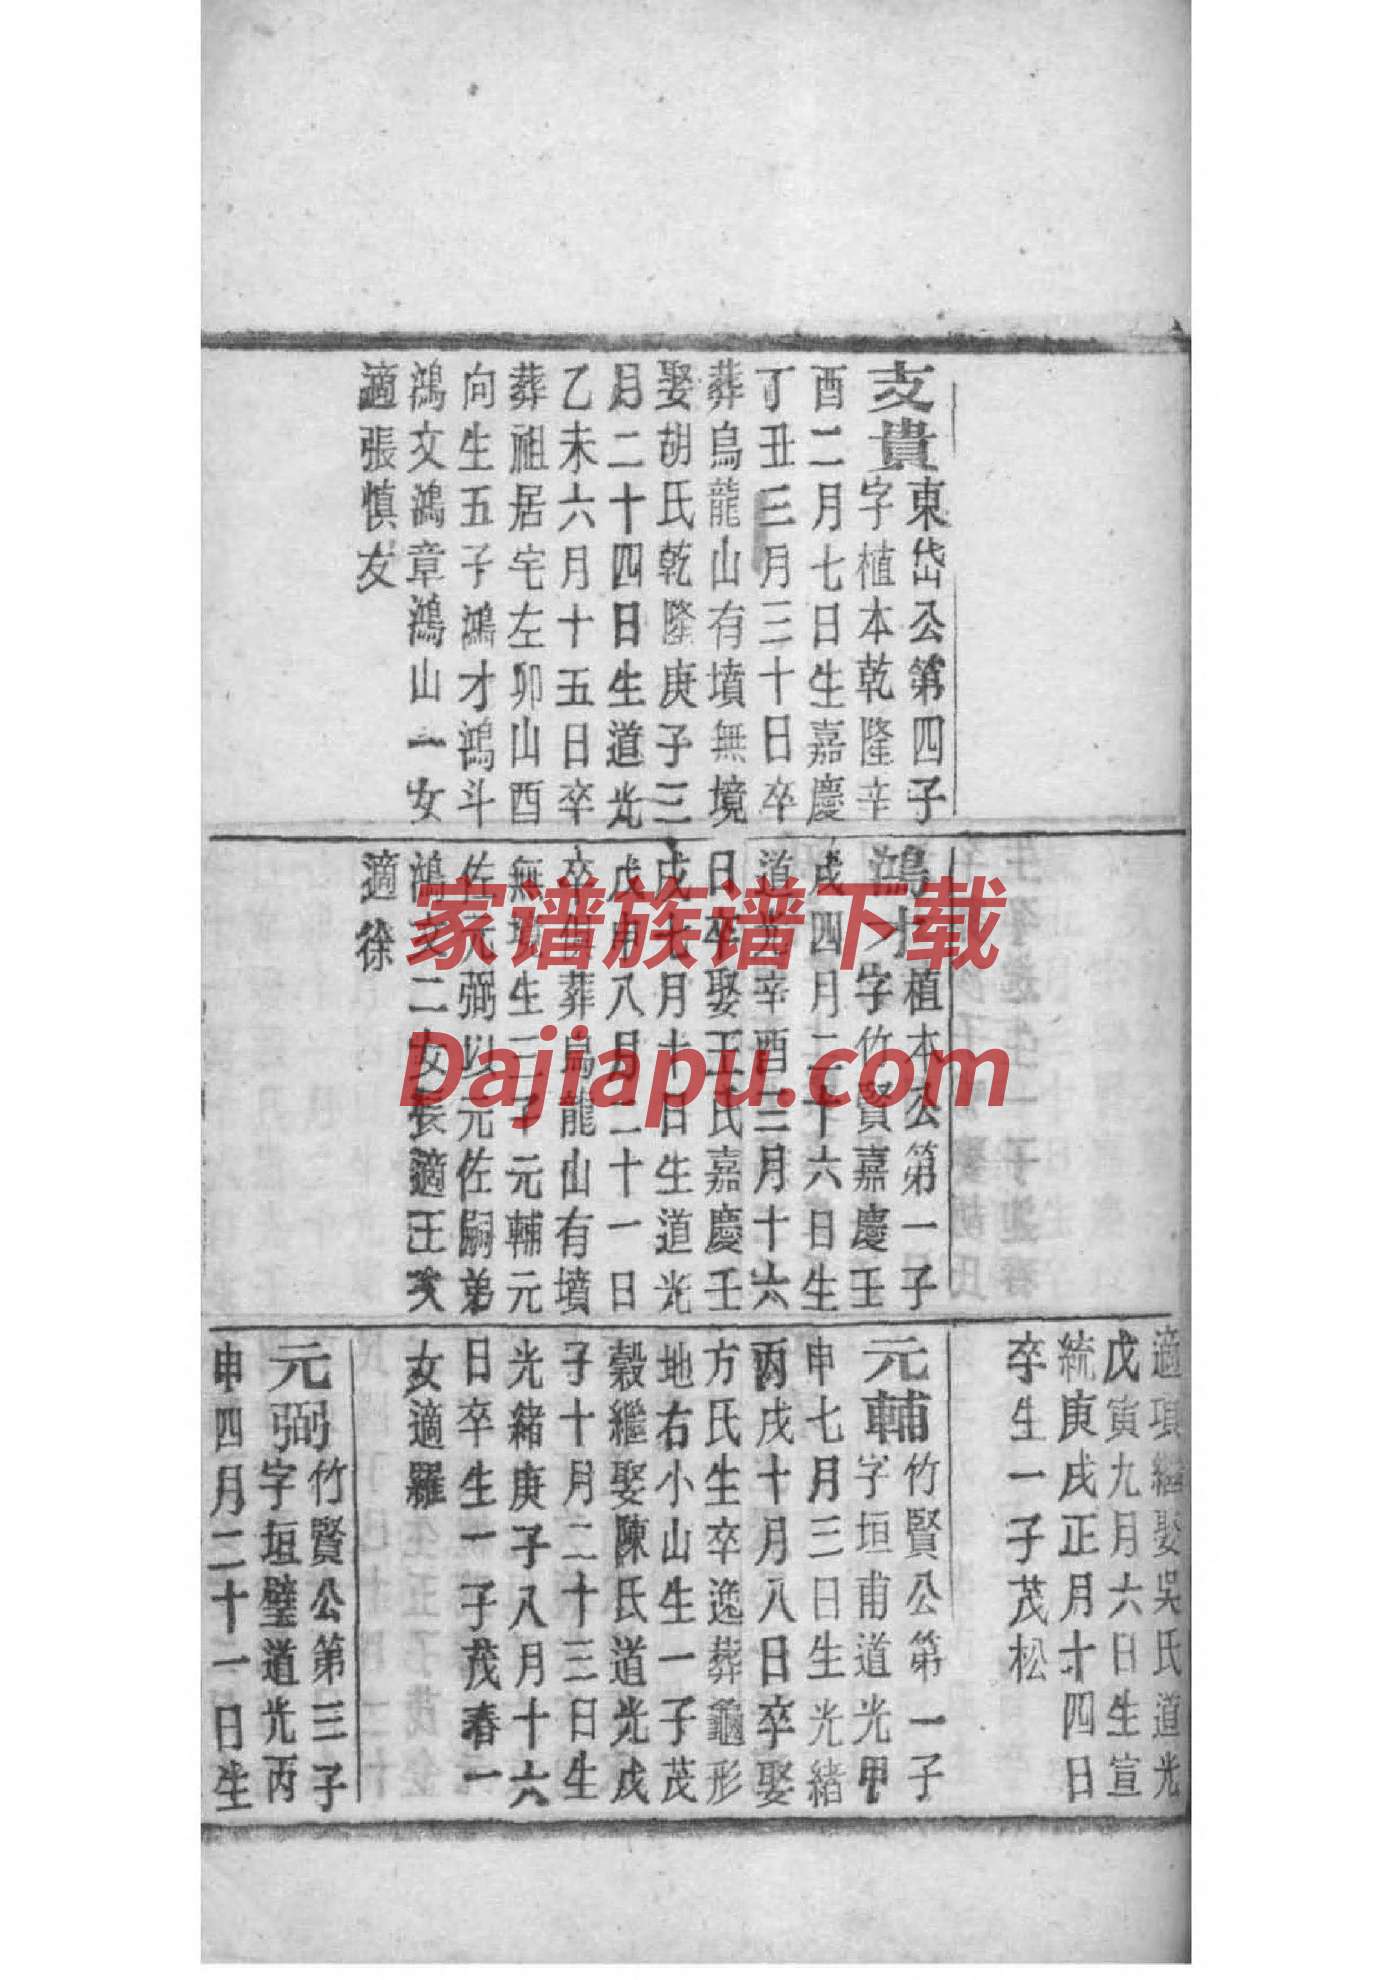 支貴東岱公第四子
字植本乾隆辛
酉二月七日生嘉慶
丁丑三月三十日卒
葬烏龍山有墳無境
娶胡氏乾隆庚子三
月二十四日生道光
乙未六月十五日卒
葬祖居宅左卯山酉
向生五子鴻才鴻斗
鴻文鴻章鴻山一女
適張慎友
鴻才植本公第一子
字竹賢嘉慶壬
戌四月二十六日生
道光辛酉三月十六
日卒娶王氏嘉慶壬
戌七月十日生道光
戊申八月二十一日
卒生葬烏龍山有墳
無境生三子元輔元
佐元弼以元佐嗣弟
鴻文二女長適王次
適徐
適項繼娶吳氏道光
戊寅九月六日生宣
統庚戌正月十四日
卒生一子茂松
元輔竹賢公第一子
字垣甫道光甲
申七月三日生光緒
丙戌十月八日卒娶
方氏生卒逸葬龜形
地右小山生一子茂
穀繼娶陳氏道光戊
子十月二十三日生
光緒庚子八月十六
日卒生一子茂春一
女適羅
元弼竹賢公第三子
字垣璧道光丙
申四月二十一日生
家谱族谱下载
Dajiapu.com